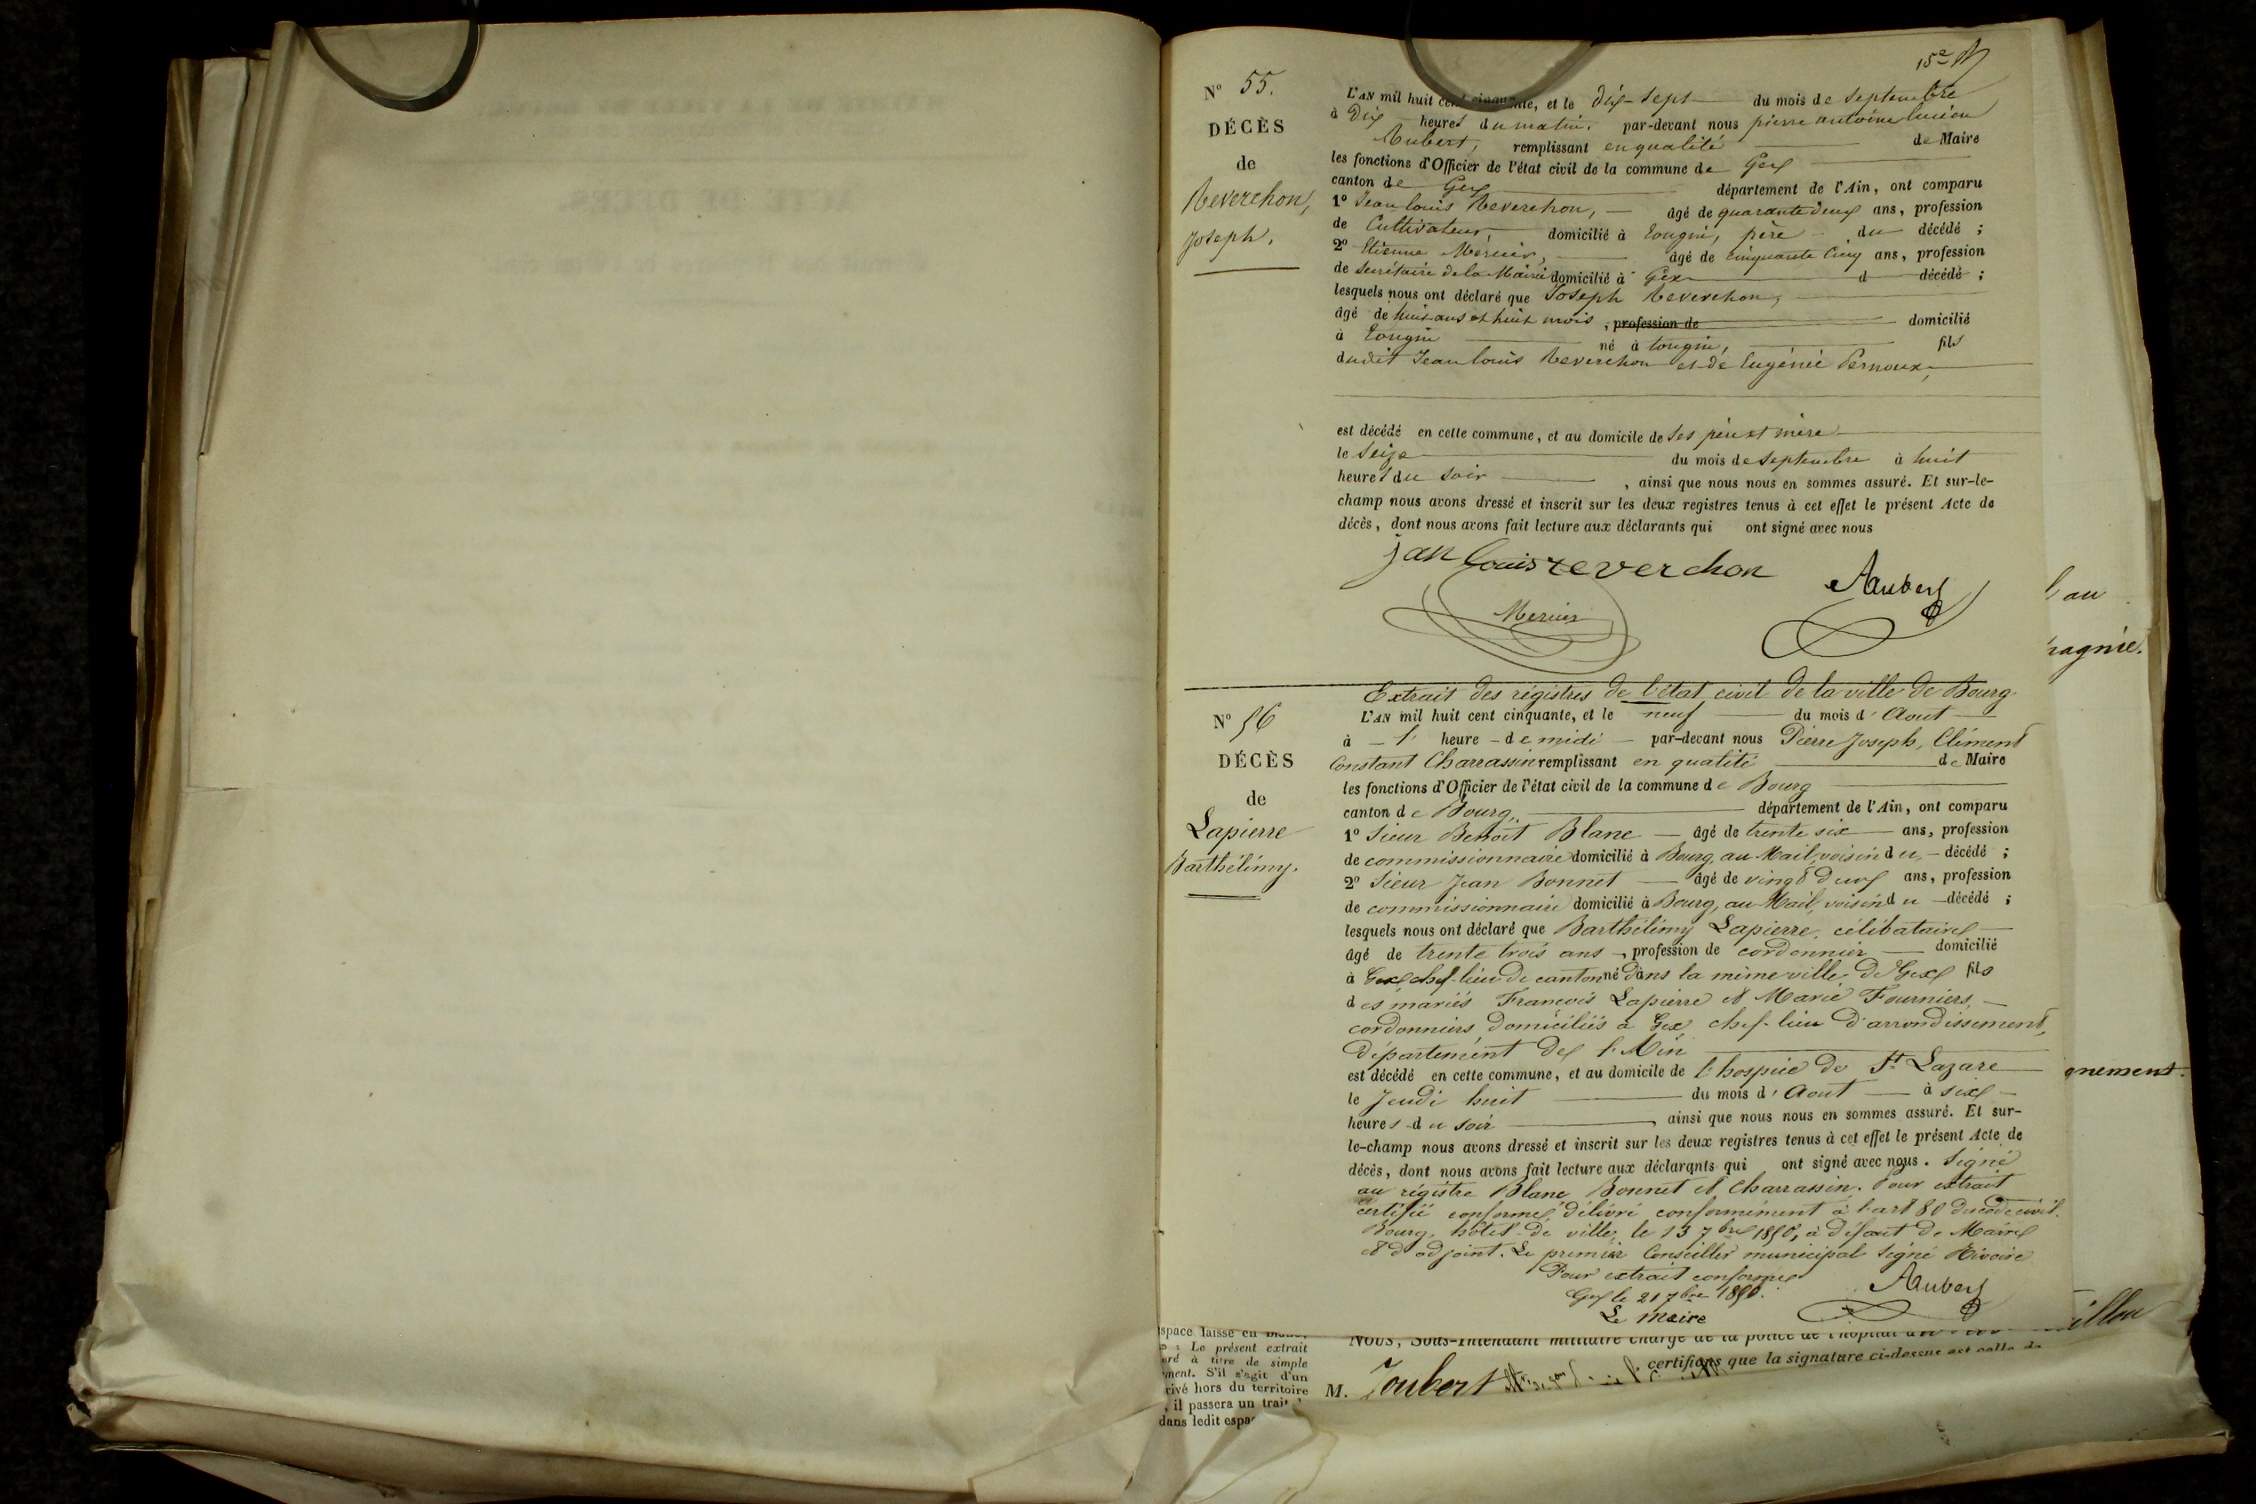 15e
N° 55.
DÉCÈS
de
Reverchon,
Joseph.
L'AN mil huit cent cinquante, et le dix-sept du mois de septembre
à dix heures du matin, par-devant nous pierre antoine lucien
Aubert, remplissant en qualité de Maire
les fonctions d'Officier de l'état civil de la commune de Gex
canton de Gex département de l'Ain, ont comparu
1° Jean louis Reverchon, âgé de quarante deux ans, profession
de Cultivateur, domicilié à tougin, père du décédé ;
2° Etienne Mercier, âgé de cinquante cinq ans, profession
de secrétaire de la Mairie domicilié à Gex d décédé ;
lesquels nous ont déclaré que Joseph Reverchon,
âgé de huit ans et huit mois, profession de domicilié
à tougin né à tougin, fils
dudit Jean louis Reverchon et de Eugénie Pernoux,
est décédé en cette commune, et au domicile de ses père et mère
le seize du mois de septembre à huit
heures du soir, ainsi que nous nous en sommes assuré. Et sur-le-
champ nous avons dressé et inscrit sur les deux registres tenus à cet effet le présent Acte de
décès, dont nous avons fait lecture aux déclarants qui ont signé avec nous
jan louis reverchon
Aubert
Mercier
Extrait des régistres de l'état civil de la ville de Bourg
N° 56
DÉCÈS
de
Lapierre
Barthélimy.
L'AN mil huit cent cinquante, et le neuf du mois d'Aout
à 1 heure de midi par-devant nous Pierre Joseph, Clément
Constant Charrassin remplissant en qualité de Maire
les fonctions d'Officier de l'état civil de la commune de Bourg
canton de Bourg, département de l'Ain, ont comparu
1° Sieur Benoit Blanc âgé de trente six ans, profession
de commissionnaire domicilié à Bourg, au Mail, voisin du décédé ;
2° Sieur Jean Bonnet âgé de vingt deux ans, profession
de commissionnaire domicilié à Bourg, au Mail, voisin du décédé ;
lesquels nous ont déclaré que Barthélimy Lapierre, célibataire
âgé de trente trois ans, profession de cordonnier domicilié
à Gex chef-lieu de canton né dans la même ville de Gex fils
des mariés François Lapierre et Marie Fourniers,
cordonniers domiciliés à Gex, chef-lieu d'arrondissement,
département de l'Ain
est décédé en cette commune, et au domicile de l'hospice de St Lazare
le Jeudi huit du mois d'Aout à six
heures du soir, ainsi que nous nous en sommes assuré. Et sur-
le-champ nous avons dressé et inscrit sur les deux registres tenus à cet effet le présent Acte de
décès, dont nous avons fait lecture aux déclarants qui ont signé avec nous. Signé
au régistre Blanc, Bonnet et Charrassin. Pour extrait
certifié conforme délivré conformément à l'art 80 du code civil.
Bourg, hôtel de ville, le 13 7bre 1850, à défaut de Maire
et d'adjoint. Le premier Conseiller municipal signé Rivoire
Pour extrait conforme
Gex le 21 7bre 1850.
Le Maire
Aubert
au
gnement.
space laissé en
Le présent extrait
à titre de simple
ment. S'il s'agit d'un
rivé hors du territoire
, il passera un trait
dans ledit espa
Nous, Sous-Intendant militaire chargé de la police de l'hôpital
certifions que la signature ci-dessus est celle de
M. Joubert